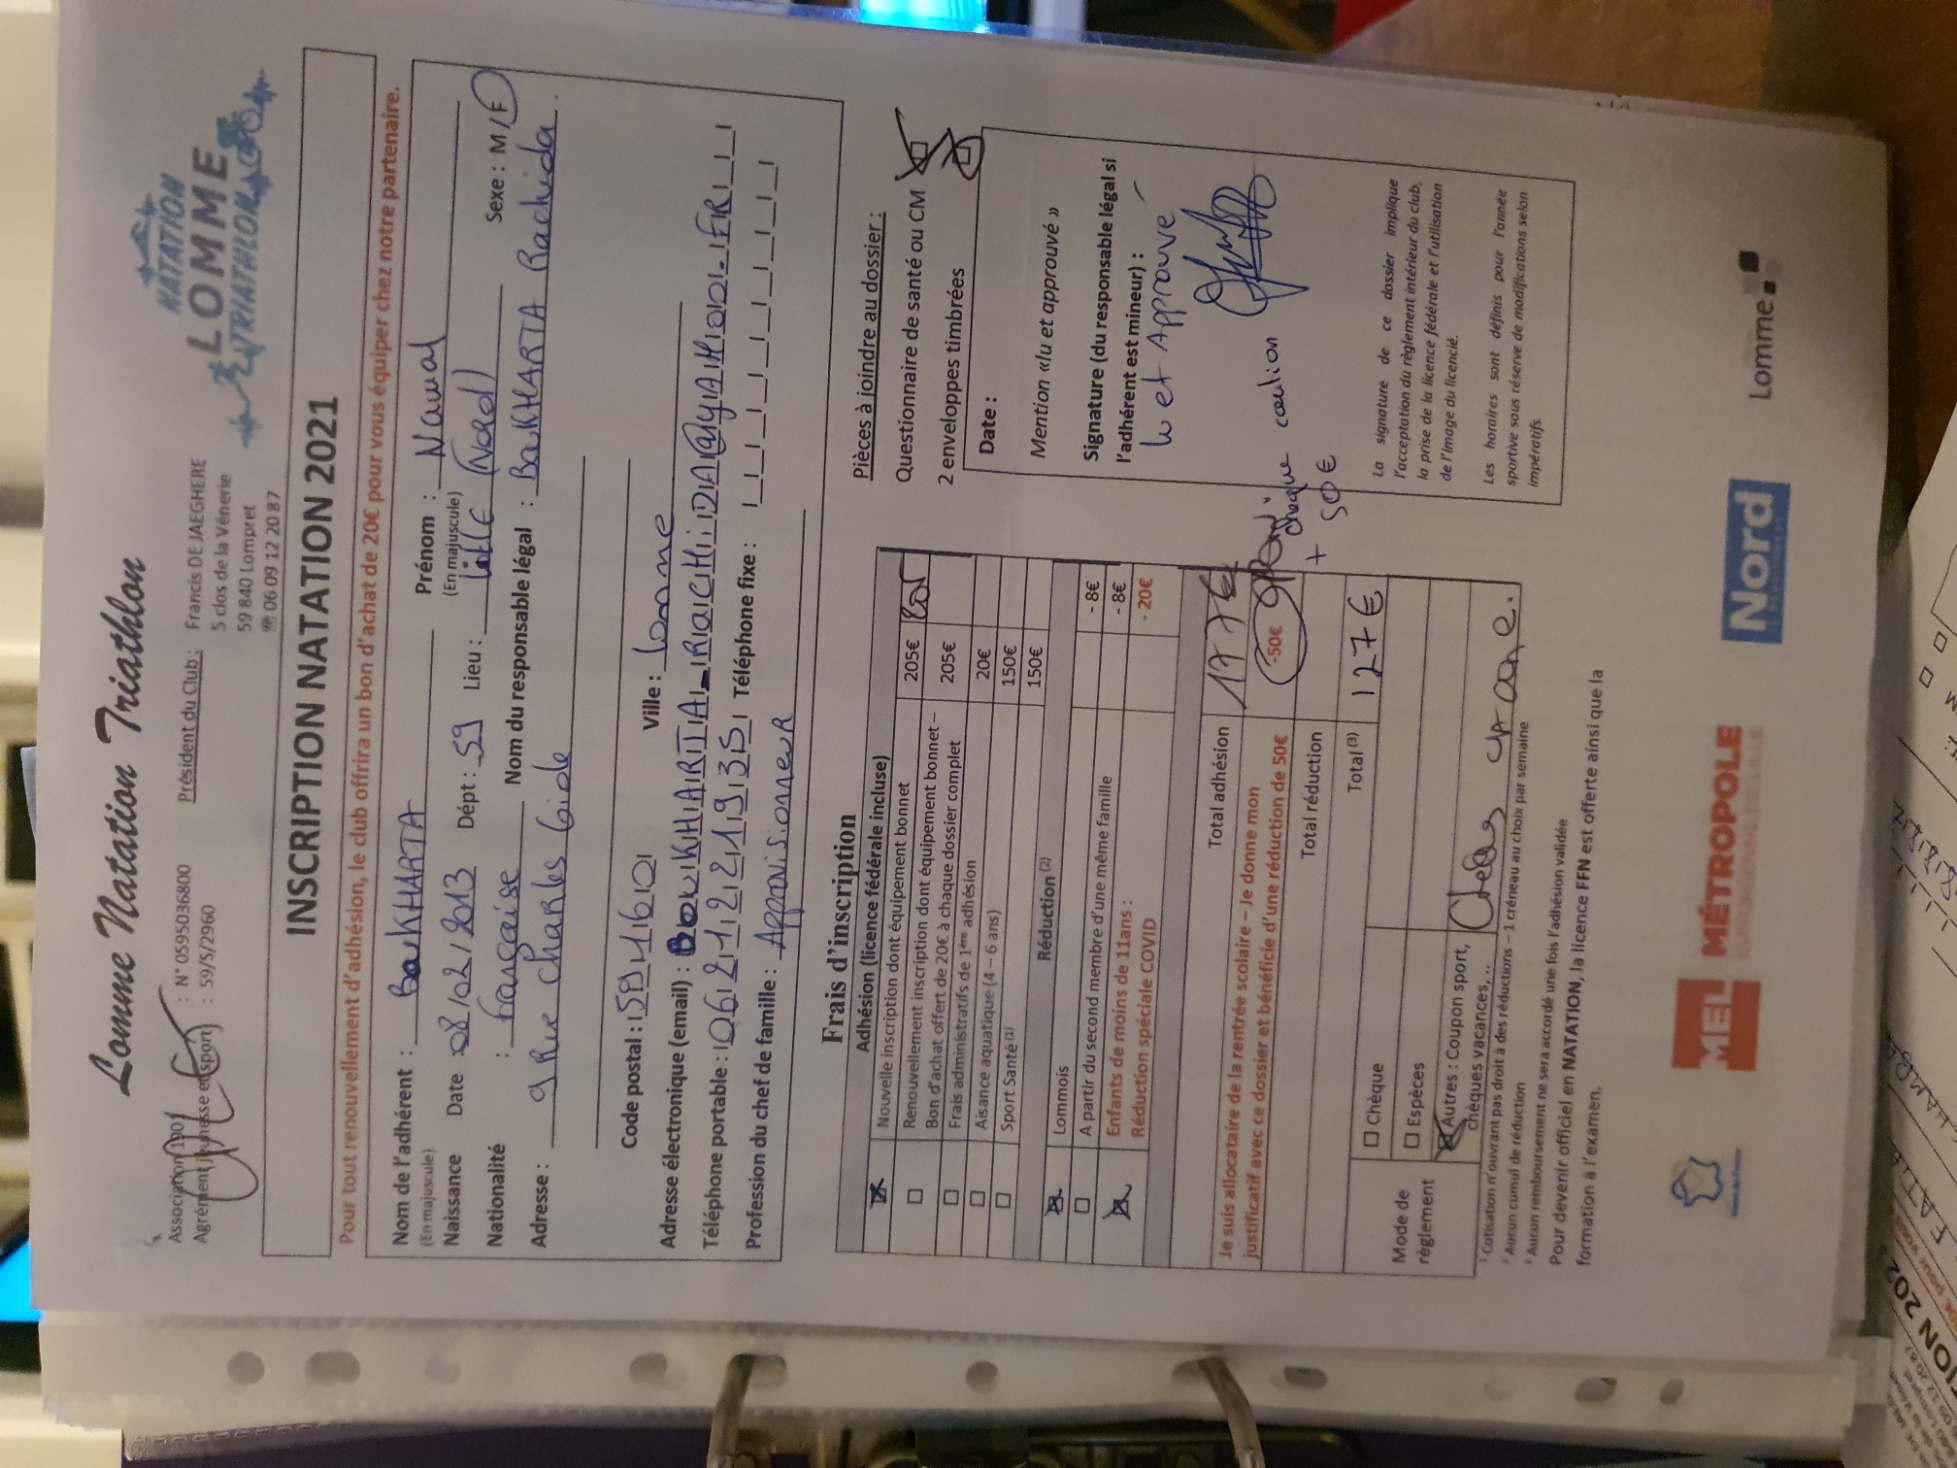 Lomme Natation Triathlon
NATATION
LOMME
TRIATHLON
Association 1901 : N° 0595036800
Agrément jeunesse et sport : 59/S/2960
Président du Club : Francis DE JAEGHERE
5 clos de la Vènerie
59 840 Lompret
☎ 06 09 12 20 87
INSCRIPTION NATATION 2021
Pour tout renouvellement d'adhésion, le club offrira un bon d'achat de 20€ pour vous équiper chez notre partenaire.
Nom de l'adhérent : BouKHARTA Prénom : Nawal
(En majuscule) (En majuscule)
Naissance Date 08/02/2013 Dépt : 59 Lieu : lillE (Nord) Sexe : M/F
Nationalité : française Nom du responsable légal : BouKHARTA Rachida
Adresse : 9 Rue Charles Gide
Code postal : 59160 Ville : lomme
Adresse électronique (email) : BOUKHARTA_RACHIDA@YAHOO.FR
Téléphone portable : 0621221935 Téléphone fixe :
Profession du chef de famille : ApprovisionneuR
Frais d'inscription
Adhésion (licence fédérale incluse)
Nouvelle inscription dont équipement bonnet 205€ 205
☐ Renouvellement inscription dont équipement bonnet – 205€
Bon d'achat offert de 20€ à chaque dossier complet
☐ Frais administratifs de 1ère adhésion 20€
☐ Aisance aquatique (4 – 6 ans) 150€
☐ Sport Santé (1) 150€
Réduction (2)
Lommois - 8€
☐ A partir du second membre d'une même famille - 8€
Enfants de moins de 11ans : - 20€
Réduction spéciale COVID
Total adhésion 177€
Je suis allocataire de la rentrée scolaire – Je donne mon
justificatif avec ce dossier et bénéficie d'une réduction de 50€ -50€
Total réduction
Total (3) 127€
Mode de règlement
☐ Chèque
☐ Espèces
Autres : Coupon sport,
chèques vacances,..
Pièces à joindre au dossier :
Questionnaire de santé ou CM
2 enveloppes timbrées
Date :
Mention «lu et approuvé »
Signature (du responsable légal si
l'adhérent est mineur) :
lu et Approuvé
+ chèque caution
50€
La signature de ce dossier implique
l'acceptation du règlement intérieur du club,
la prise de la licence fédérale et l'utilisation
de l'image du licencié.
Les horaires sont définis pour l'année
sportive sous réserve de modifications selon
impératifs.
¹ Cotisation n'ouvrant pas droit à des réductions – 1 créneau au choix par semaine
² Aucun cumul de réduction
³ Aucun remboursement ne sera accordé une fois l'adhésion validée
Pour devenir officiel en NATATION, la licence FFN est offerte ainsi que la
formation à l'examen.
MEL MÉTROPOLE
EUROPÉENNE DE LILLE
Nord
Lomme